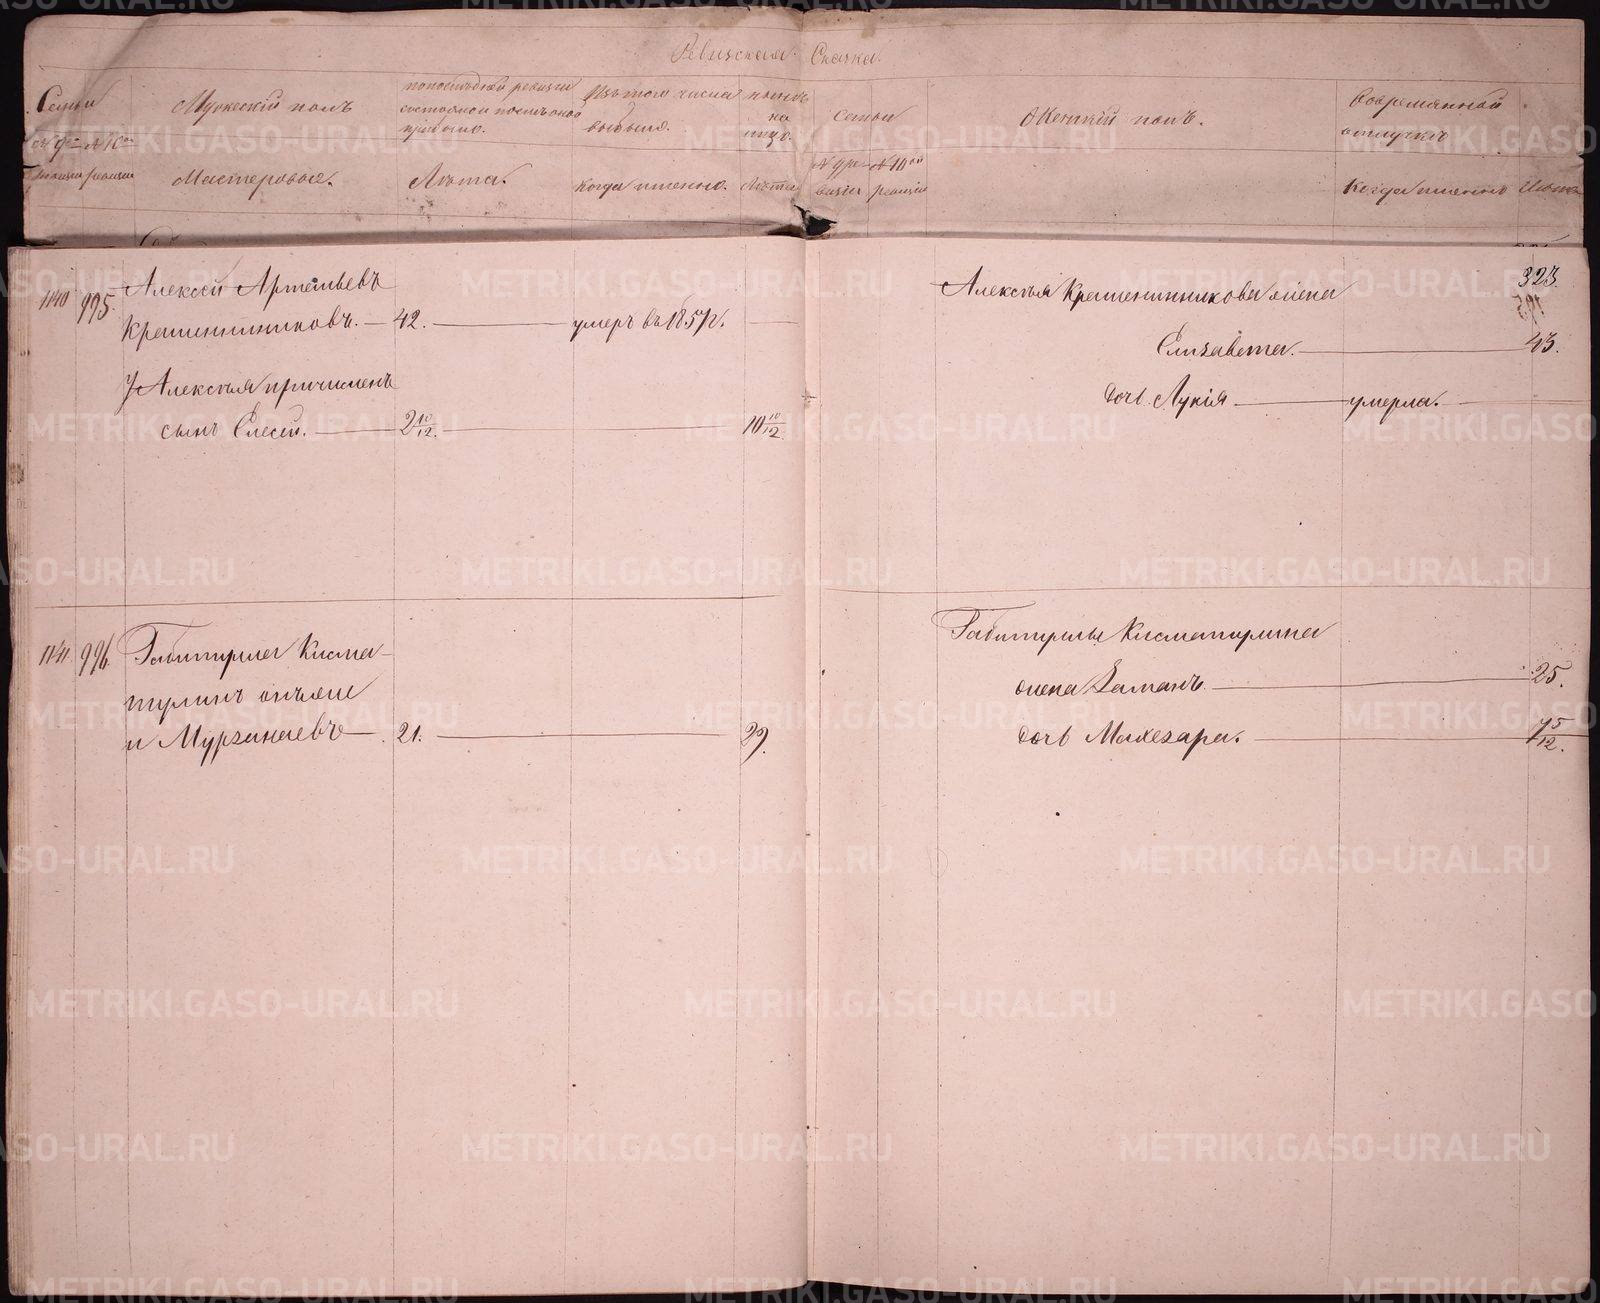 Ревизская Сказка.
Семьи
Мужескій полъ
по последней ревизіи
состояло и после оной
прибыло.
Изъ того числа
выбыло.
ныне
на
лицо.
Семьи
Женскій полъ.
Во временной
отлучке
Мастеровые.
Лѣта.
Когда именно.
Лѣта
Когда именно
Лѣта
323.
1140 995. Алексѣй Артемьевъ
Крашенинниковъ. — 42. — умеръ въ 1857 г. —
У Алексѣя причисленъ
сынъ Елесей. — 2 10/12. — 10 10/12
Алексѣя Крашенинникова жена
Елизавета. — 43.
дочь Лукія — умерла. —
1141. 996. Габитулла Кисма-
тулинъ онъ же
и Мурзакаевъ — 21. — 29.
Габитуллы Кисматулина
жена Заманъ. — 25.
дочь Махезара. — 7 5/12.
METRIKI.GASO-URAL.RU